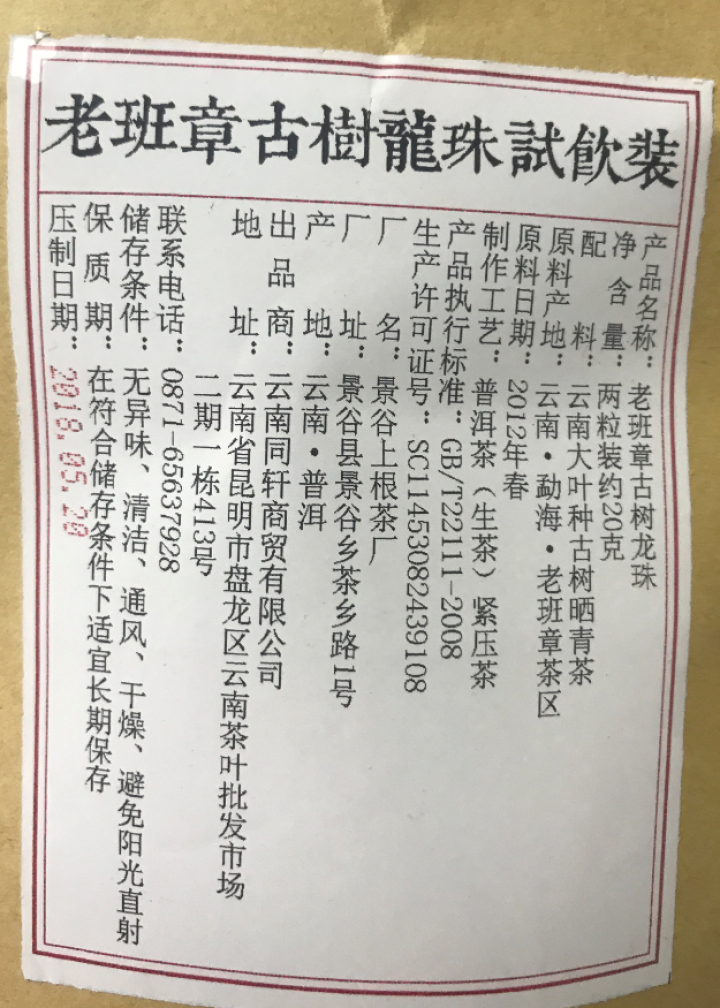 老班章古樹龍珠試飲裝
产品名称：老班章古树龙珠
净含量：两粒装约20克
配料：云南大叶种古树晒青茶
原料产地：云南·勐海·老班章茶区
原料日期：2012年春
制作工艺：普洱茶（生茶）紧压茶
产品执行标准：GB/T22111-2008
生产许可证号：SC11453082439108
厂名：景谷上根茶厂
厂址：景谷县景谷乡茶乡路1号
产地：云南·普洱
出品商：云南同轩商贸有限公司
地址：云南省昆明市盘龙区云南茶叶批发市场
二期一栋413号
联系电话：0871-65637928
储存条件：无异味、清洁、通风、干燥、避免阳光直射
保质期：在符合储存条件下适宜长期保存
压制日期：2018.05.20